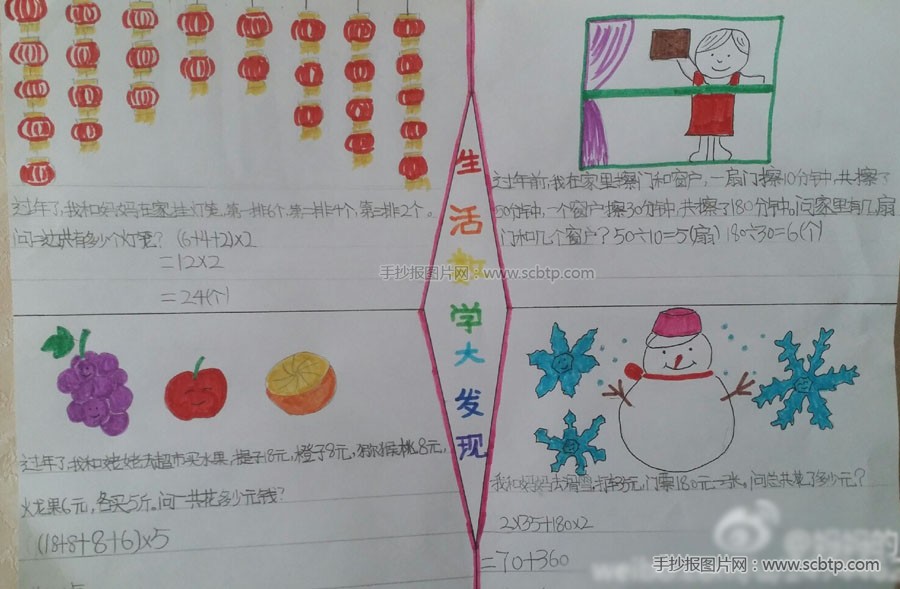 过年了,我和妈妈在家挂灯笼,第一排6个,第二排4个,第三排2个。
问一边共有多少个灯笼? (6+4+2)×2
=12×2
=24(个)
过年前,我在家里擦门和窗户,一扇门擦10分钟,共擦了
50分钟,一个窗户擦30分钟,共擦了180分钟。问家里有几扇
门和几个窗户? 50÷10=5(扇) 180÷30=6(个)
生活数学大发现
手抄报图片网:www.scbtp.com
过年了,我和姥姥去超市买水果,提子18元,橙子8元,猕猴桃8元,
火龙果6元,各买5斤。问一共花多少元钱?
(18+8+8+6)×5
我和妈妈去滑雪,打车35元,门票180元一张,问总共花了多少元?
2×35+180×2
=70+360
手抄报图片网:www.scbtp.com